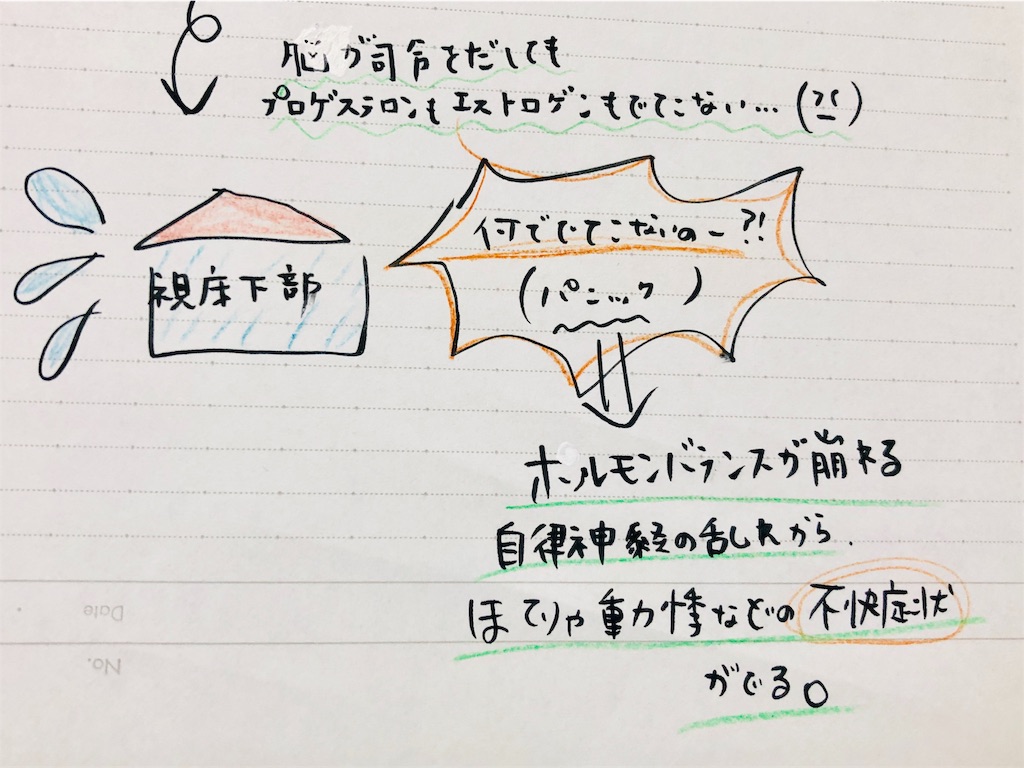 脳が司令をだしても
プロゲステロンもエストロゲンもでてこない…
何ででてこないのー?!
(パニック)
視床下部
ホルモンバランスが崩れる
自律神経の乱れから
ほてりや動悸などの不快症状
がでる。
Date
No.